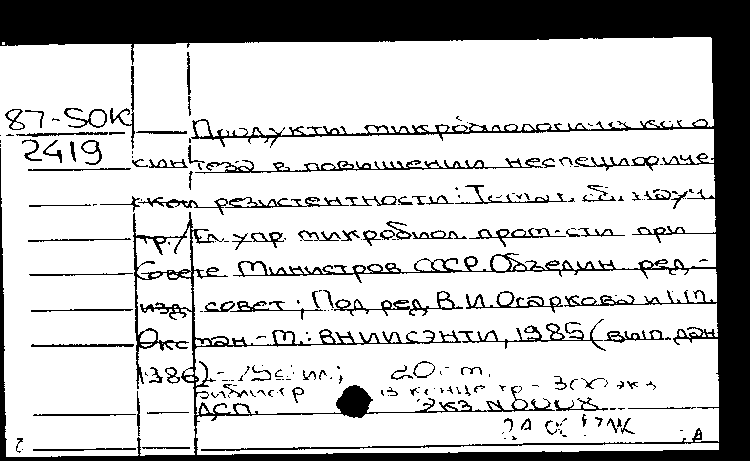 87-5ОК
2419
Продукты микробиологического
синтеза в повышении неспецифиче-
ской резистентности: Темат. сб. науч.
тр./Гл. упр. микробиол. пром-сти при
Совете Министров СССР. Объедин. ред.-
изд. совет; Под ред. В.И. Осаркова и
Окс ман.-М.: ВНИИСЭНТИ, 1985 (вып. дан
1986).- ил.; 20 m.
в конце 300 экз
ДСП. ЭКЗ. N